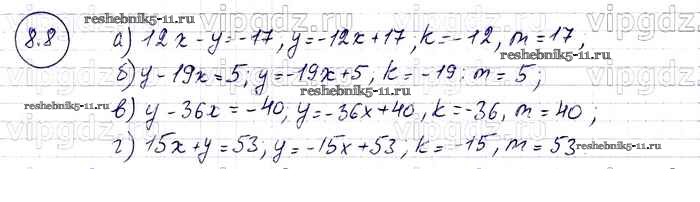 reshebnik5-11.ru
8.8 а) 12x - y = -17, y = -12x + 17; k = -12, m = 17;
б) y - 19x = 5; y = -19x + 5, k = -19; m = 5;
reshebnik5-11.ru reshebnik5-11.ru
в) y - 36x = -40, y = -36x + 40, k = -36, m = 40;
г) 15x + y = 53; y = -15x + 53; k = -15, m = 53
reshebnik5-11.ru reshebnik5-11.ru
vipgdz.ru vipgdz.ru vipgdz